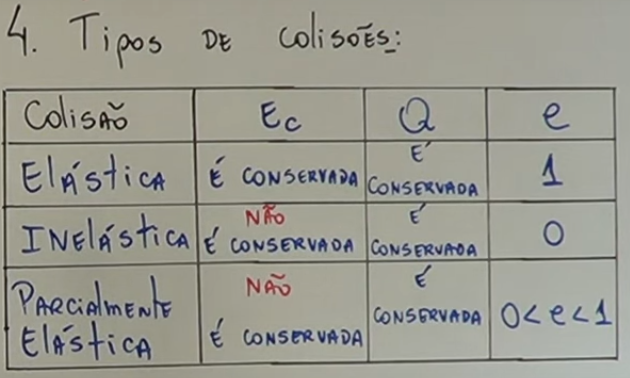 4. Tipos DE colisões:
Colisão Ec Q e
Elástica É CONSERVADA É CONSERVADA 1
INElástica NÃO É CONSERVADA É CONSERVADA 0
PARCIAlmente Elástica NÃO É CONSERVADA É CONSERVADA 0<e<1